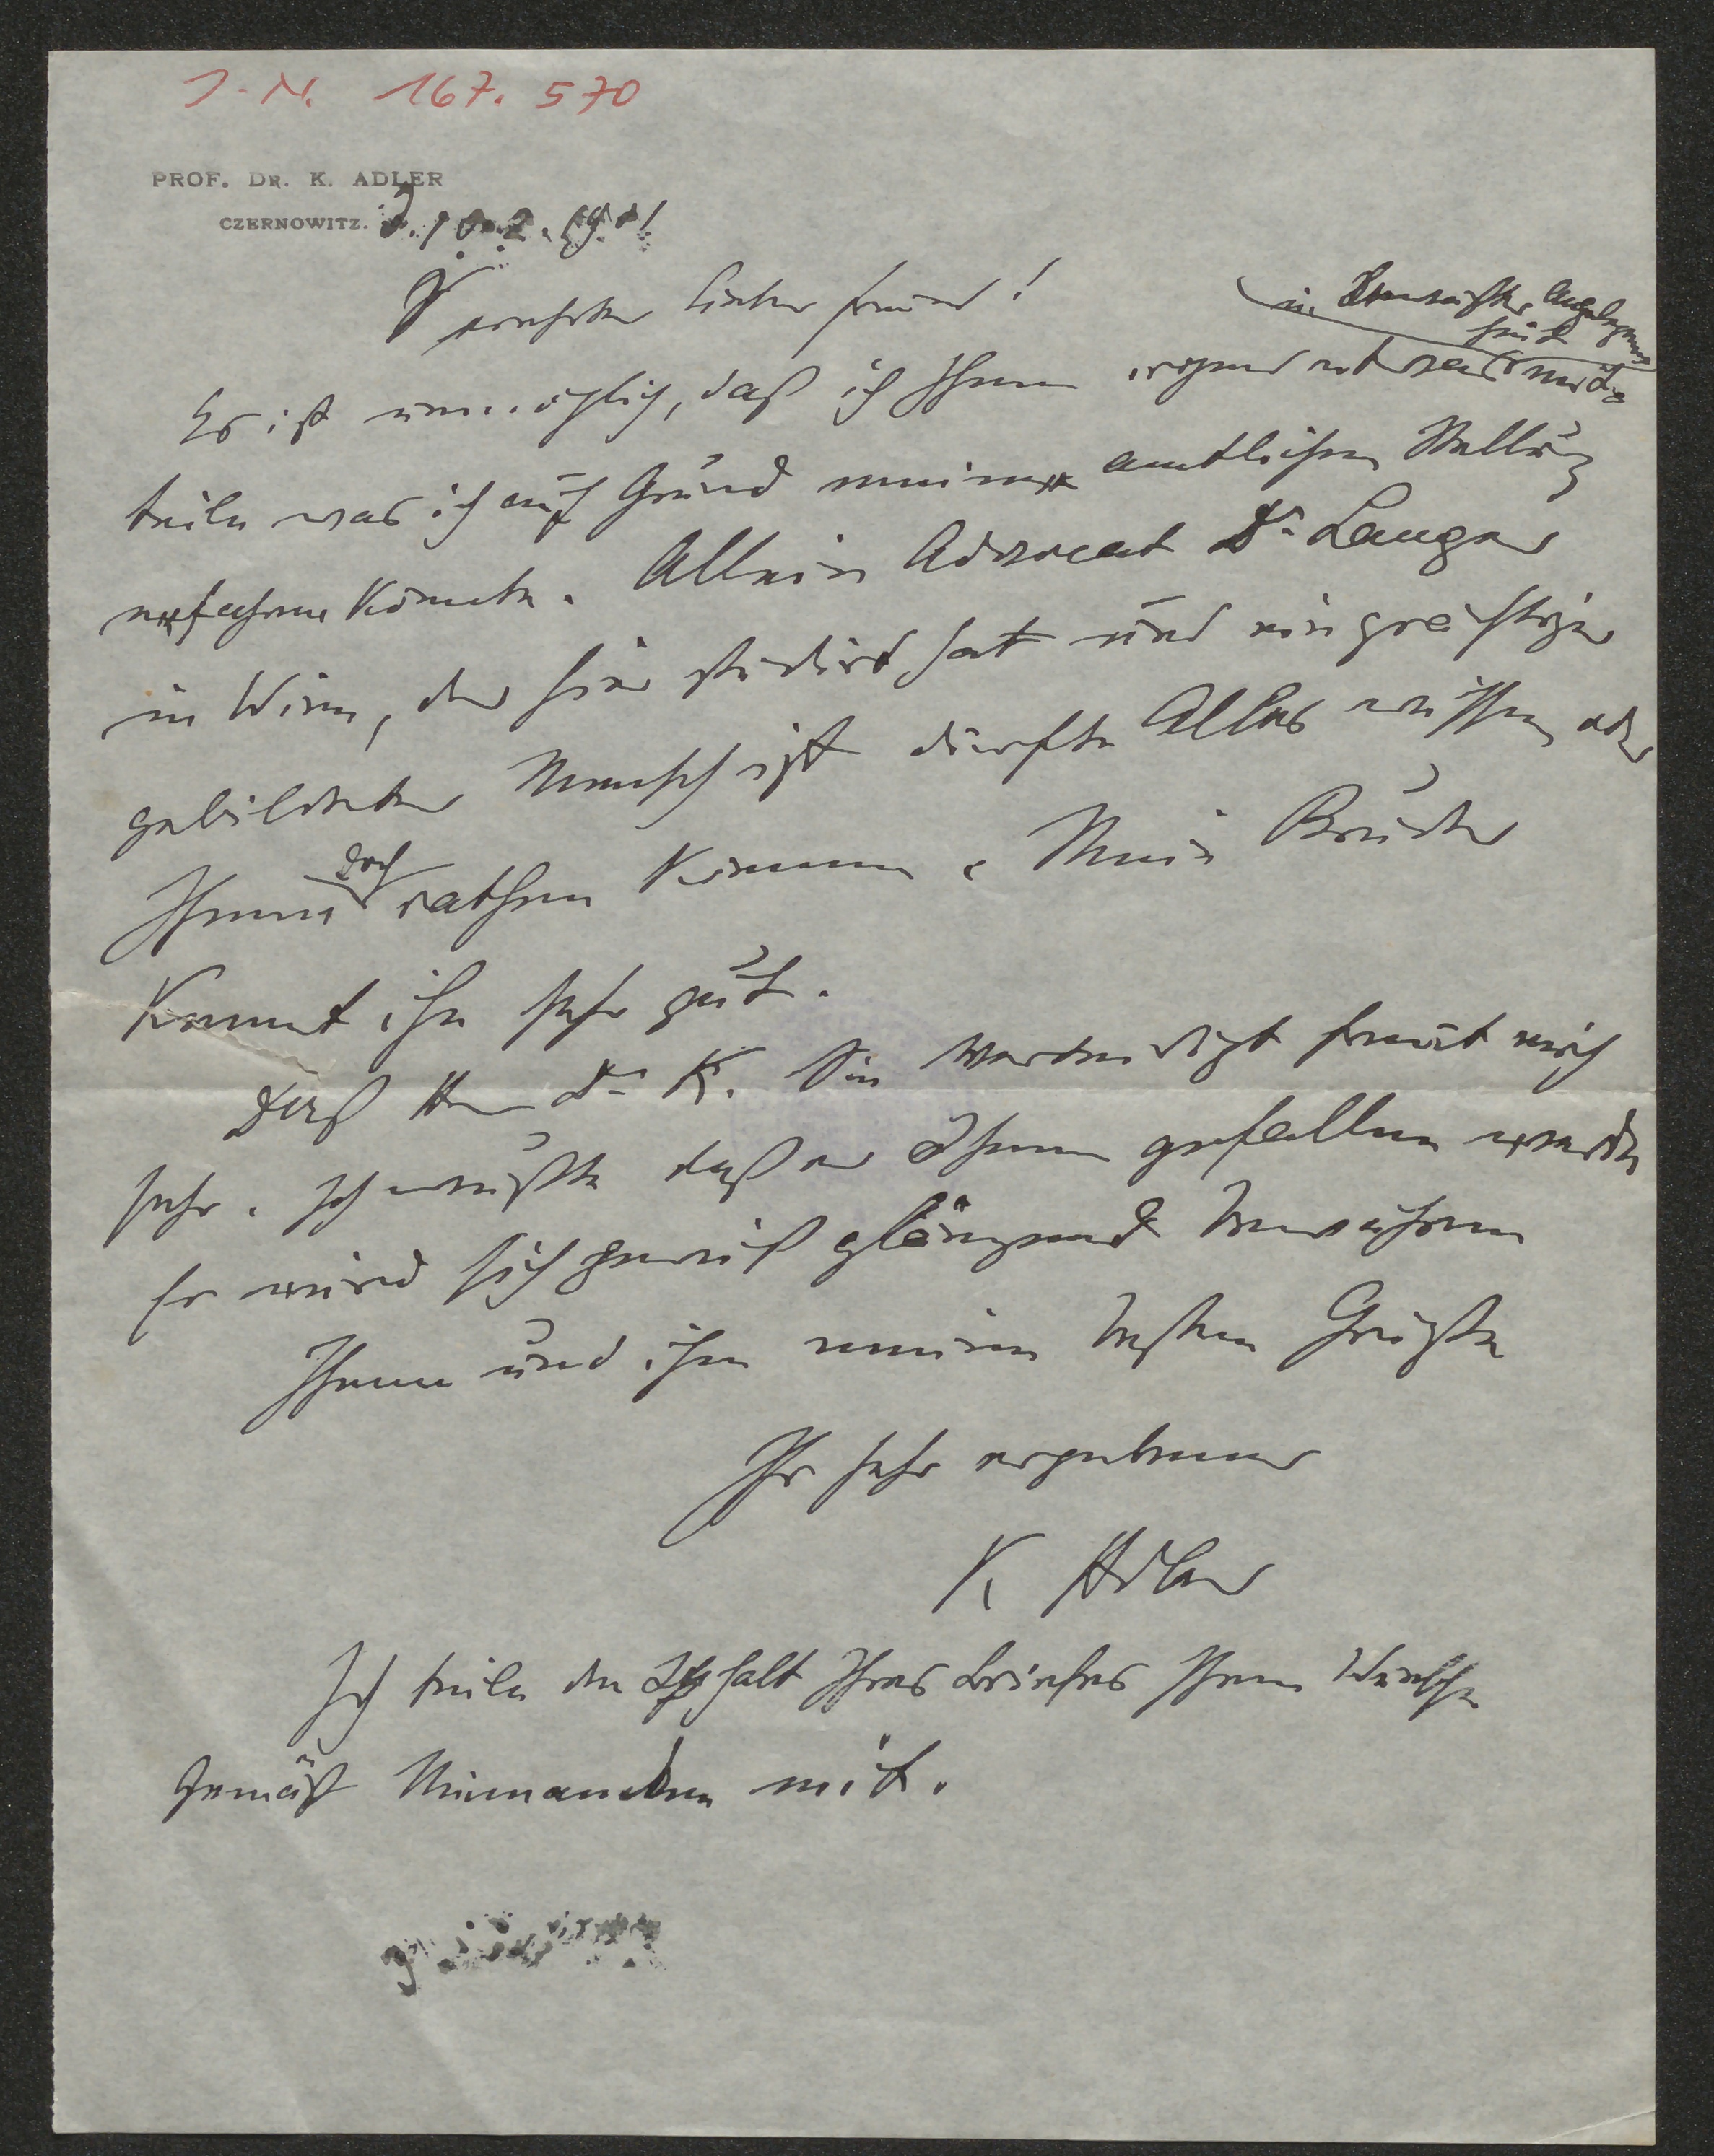 I. N. 167.570
PROF. DR. K. ADLER
CZERNOWITZ. 10.2.1901
Verehrter lieber Freund!
in Ihrer Angelegenheit
Es ist unmöglich, daß ich Ihnen irgend etwas mit-
teile was ich auf Grund meiner amtlichen Stellung
erfahren könnte. Allein Advocat Dr Langer
in Wien, der hier studiert hat und ein
gebildeter Mensch ist dürfte Alles wissen oder
Ihnen doch rathen können. Mein Bruder
kennt ihn sehr gut.
Daß Herr Dr K. Sie verteidigt freut mich
sehr. Ich wußte daß er Ihnen gefallen werde
Er wird sich gewiß glänzend bewähren
Ihnen und ihm meine besten Grüße
Ihr sehr ergebener
K Adler
Ich teile den Inhalt Ihres Briefes Ihrem Wunsche
gemäß Niemandem mit.